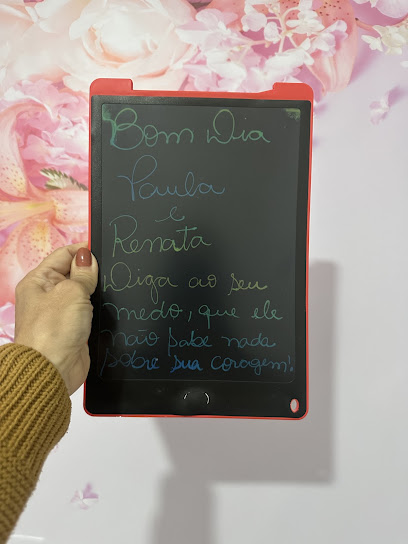 Bom Dia
Paula
e
Renata
Diga ao seu
medo, que ele
não sabe nada
sobre sua coragem!